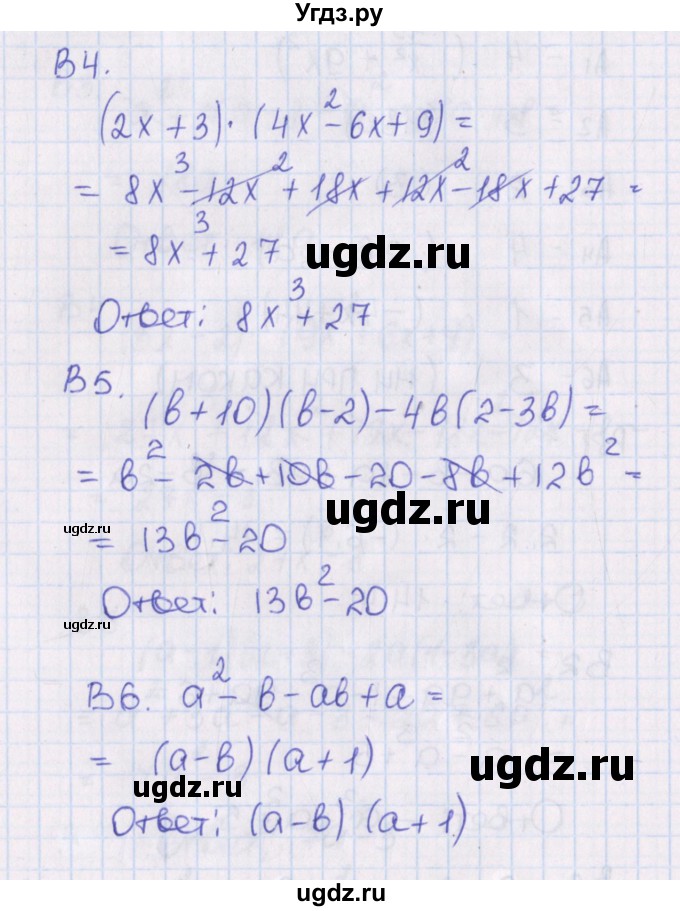 Угдз.ру
В4.
(2x + 3) · (4x² - 6x + 9) =
= 8x³ - 12x² + 18x + 12x² - 18x + 27 =
= 8x³ + 27
ugdz.ru
Ответ: 8x³ + 27
В5.
(в + 10)(в - 2) - 4в(2 - 3в) =
= в² - 2в + 10в - 20 - 8в + 12в² =
ugdz.ru
ugdz.ru
= 13в² - 20
Ответ: 13в² - 20
ugdz.ru
В6. a² - в - aв + a =
= (a - в)(a + 1)
ugdz.ru
ugdz.ru
Ответ: (a - в)(a + 1)
ugdz.ru